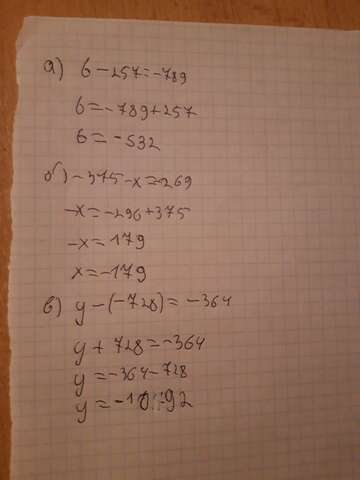 а) б - 257 = -789
б = -789 + 257
б = -532
б) -375 - x = -269
-x = -296 + 375
-x = 179
x = -179
в) y - (-728) = -364
y + 728 = -364
y = -364 - 728
y = -1092